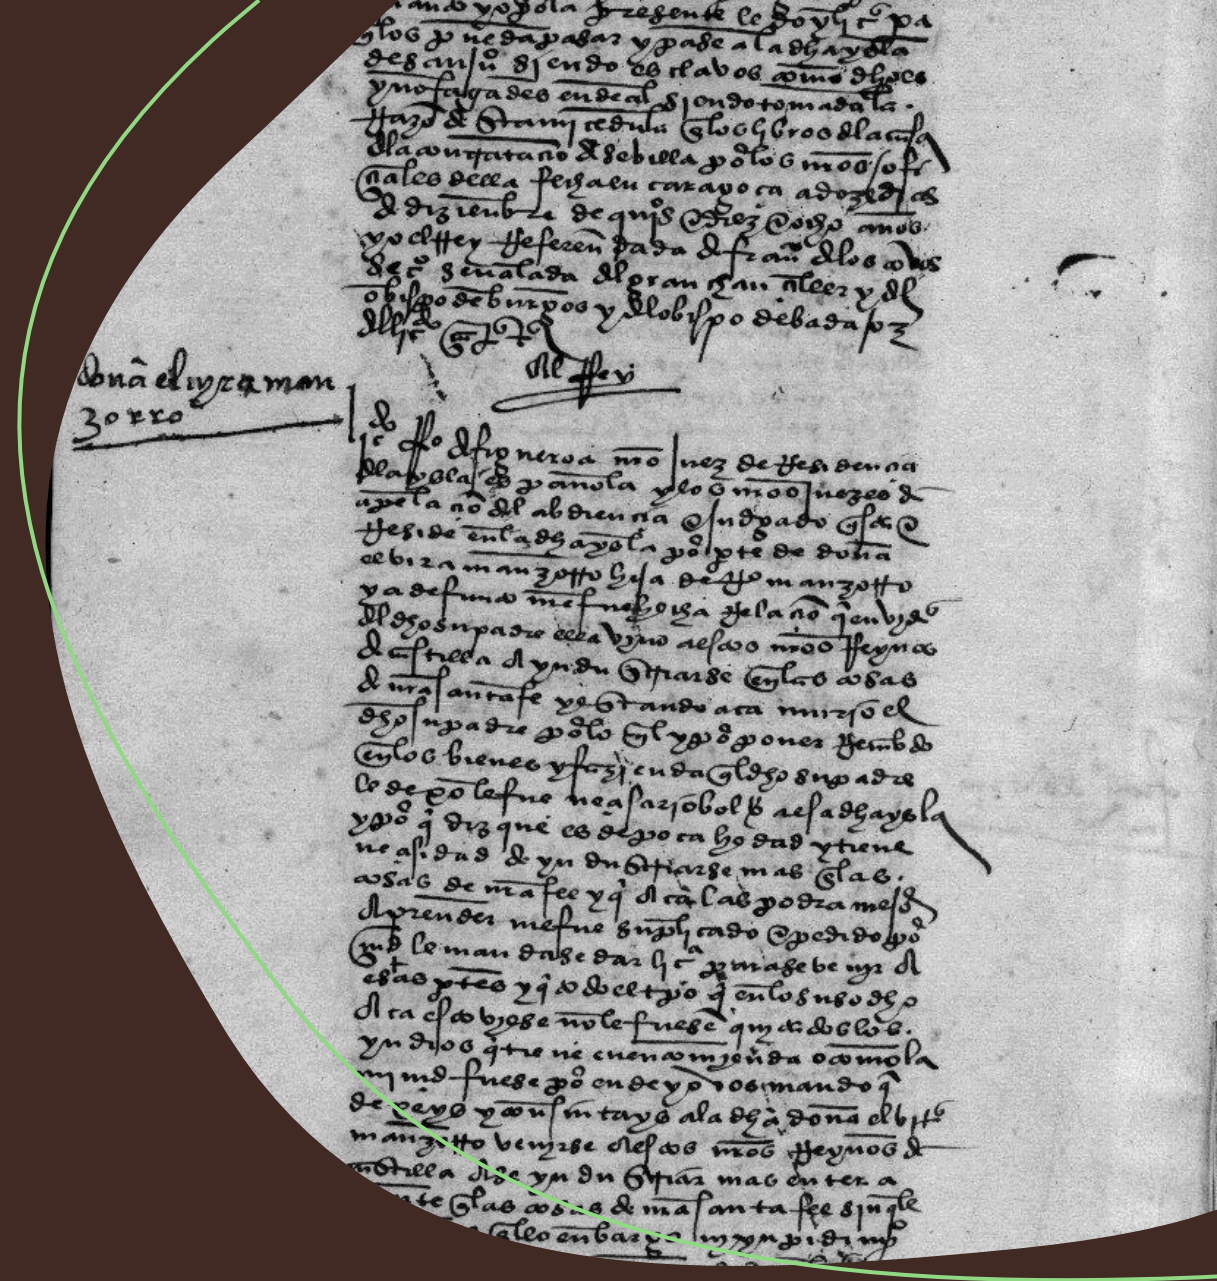 presente le doy lic^a pa
los pueda pasar y pase a la dha ysla
de san ju^o siendo esclavos como dho es
y no fagades en de al siendo tomada la
Razo de esta mi cedula los libros d la casa
d la contratacio de sebilla por los nros ofi
ciales della fecha en caragoca a doze dias
de dizienbre de qui^os e diez e ocho años
yo el Rey Referen dada de fran^co de los covos
señalada del gran chanciller y del
obispo de burgos y del obispo de badajoz
El Rey
doña elvyra man
zorro
l^do R^o de figueroa nro juez de Residencia
d la ysla española y los nros juezes de
apelacio del abdiencia e judgado q esta e
Reside en la dha ysla por pte de doña
elvira manzorro hija de R^o manzorro
ya defunto me fue hecha Relacio q en vida
del dho su padre ella vino a estos nros Reynos
de castilla a yndustriarse en las cosas
de nra santa fe y estando aca murio el
dho su padre por lo ql y por poner Recabdo
en los bienes y fazienda ql dho su padre
le dexo le fue necesario bolver a esa dha ysla
y por q diz que es de poca hedad y tiene
necesidad de yndustriarse mas en las
cosas de nra fee y q aca las podra mejor
aprender me fue suplicado e pedido por
mrd le mandase dar lic^a para se venir a
estas ptes y q todo el tpo q en lo suso dho
aca estoviese no le fuesen quitados los
yndios q tiene encomienda o como la
mi mrd fuese por ende yo vos mando q
dexeys y consintays a la dha doña elvira
manzorro venirse a estos nros Reynos de
castilla a se yndustriar mas entera
mente en las cosas de nra santa fee sin q le
enbargo ni ynpidimi^o